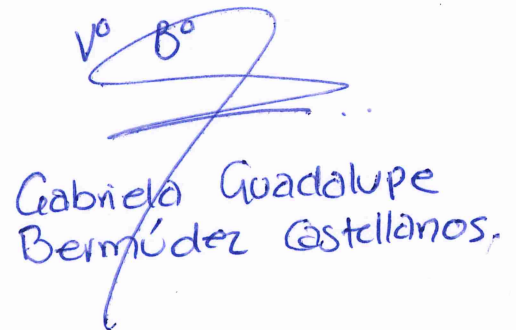 Vº Bº
Gabriela Guadalupe
Bermúdez Castellanos.